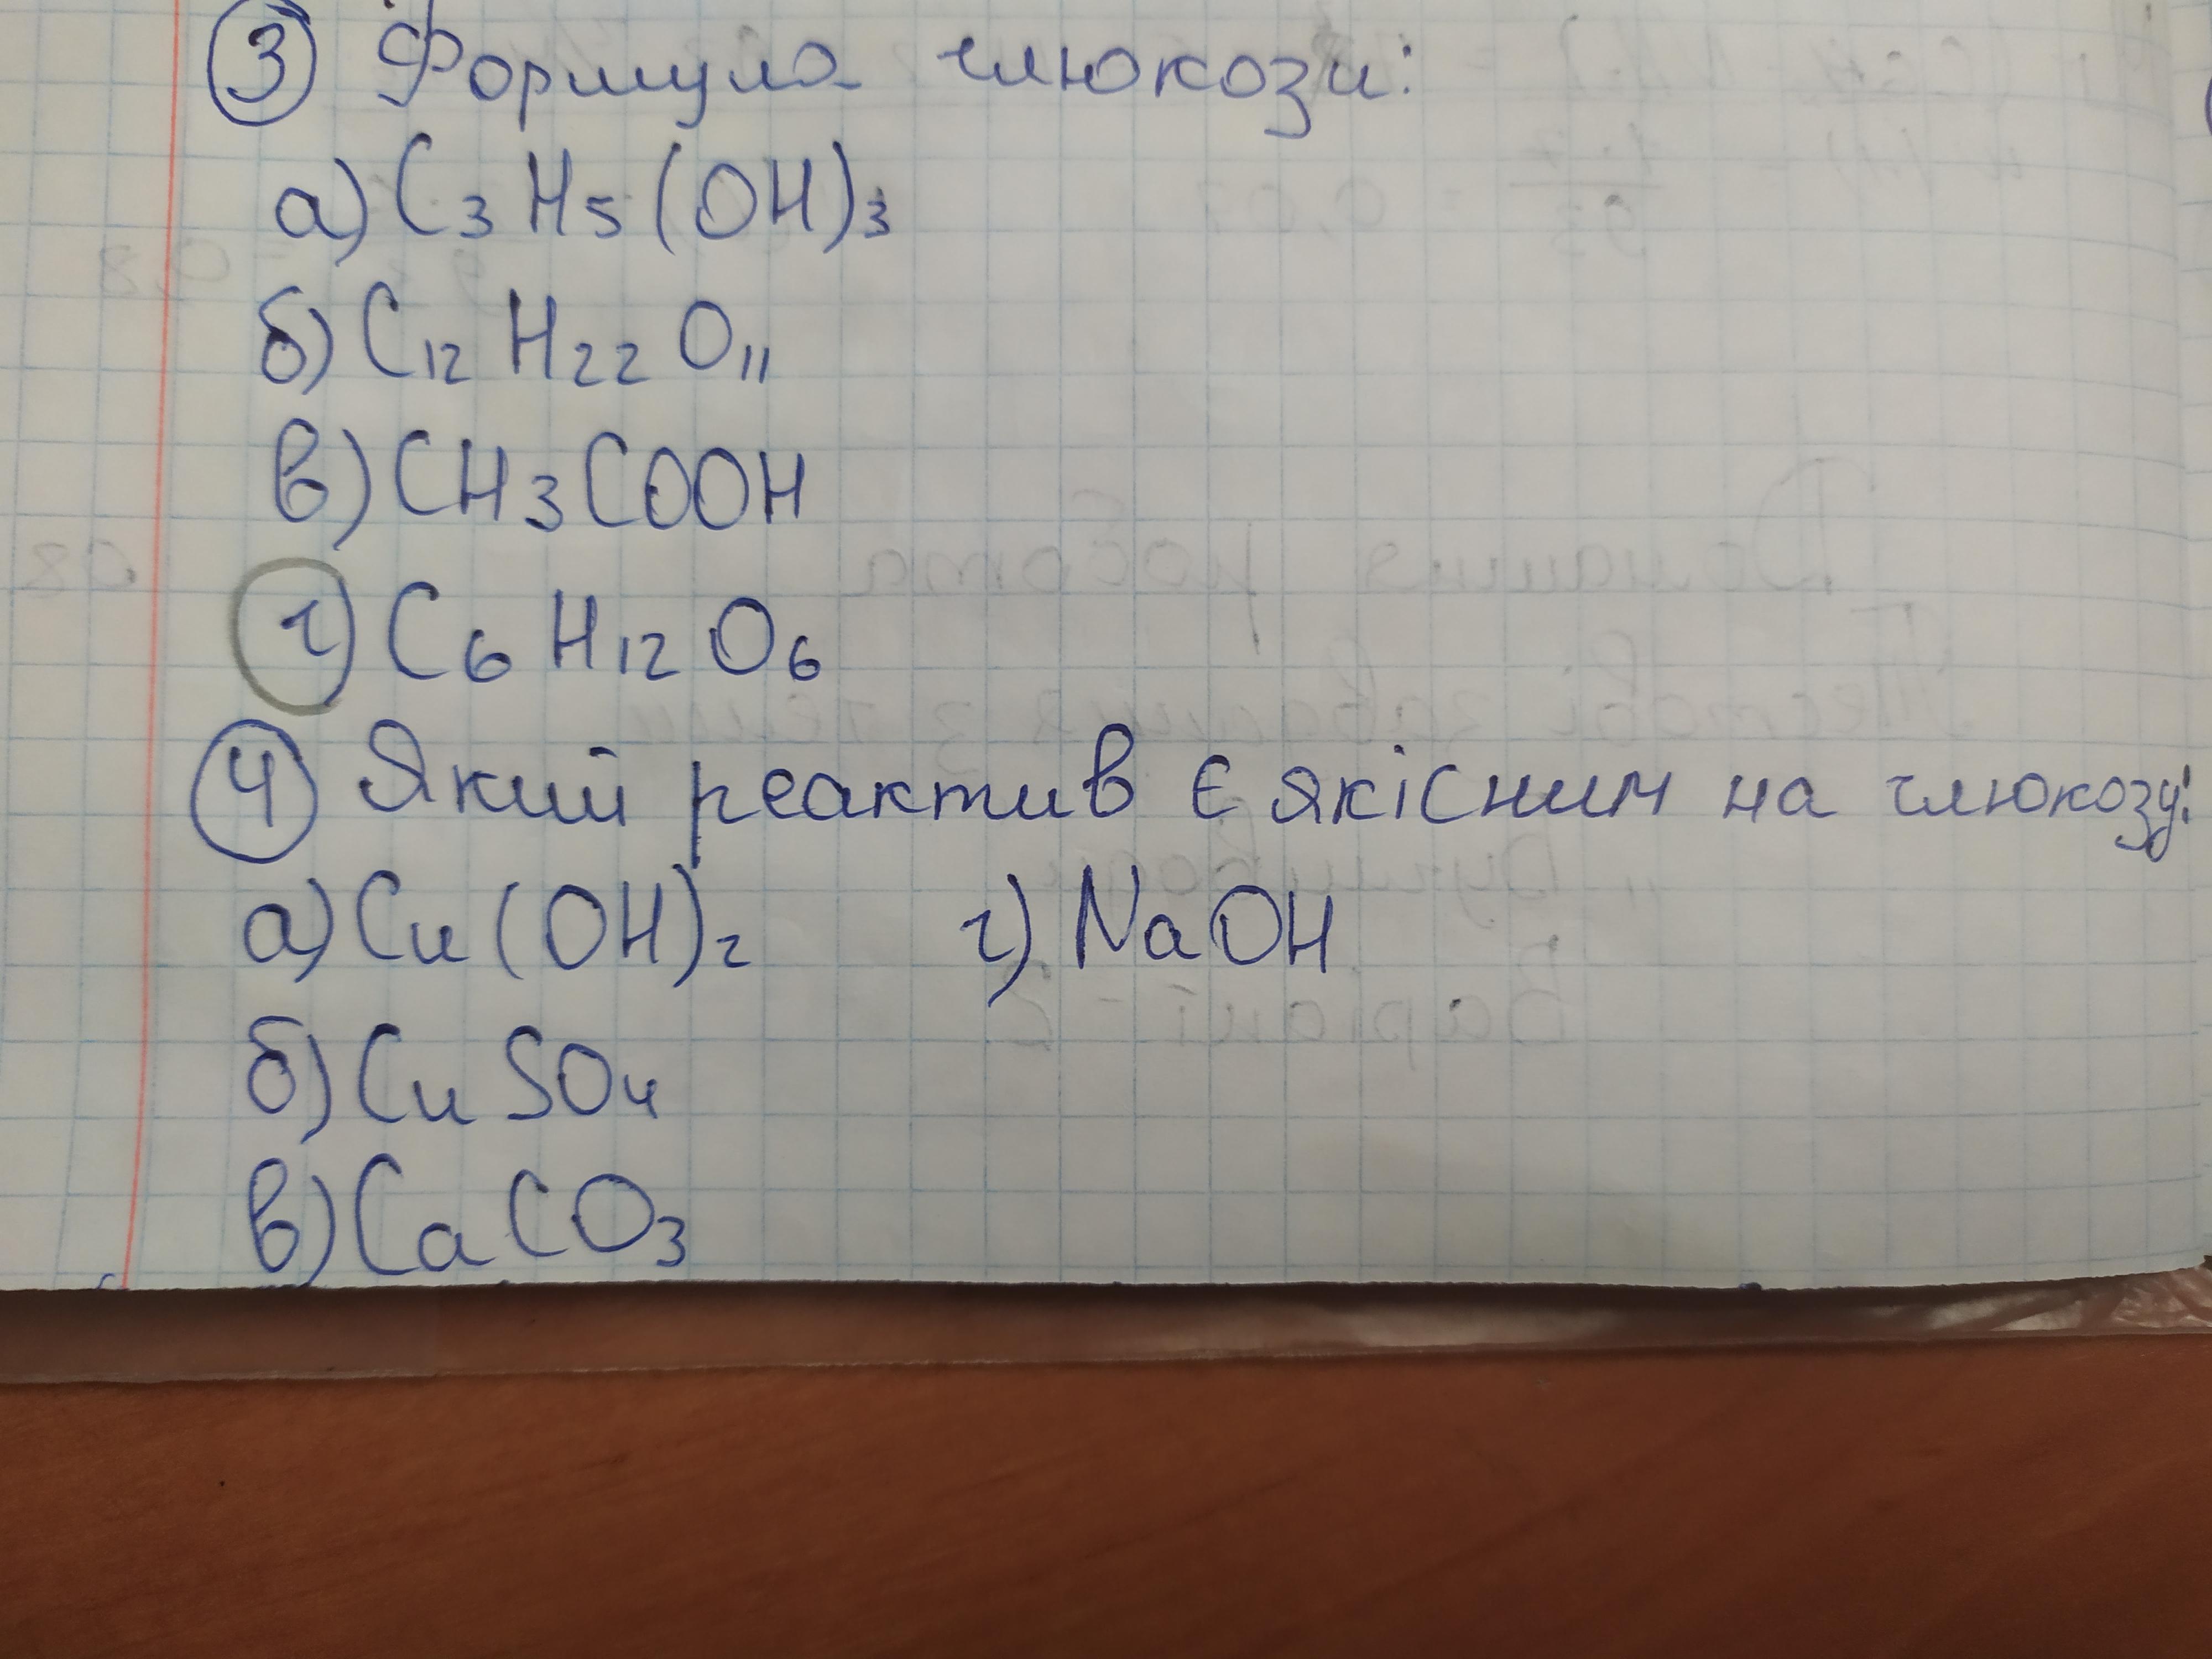 3 Формула глюкози:
а) C₃H₅(OH)₃
б) C₁₂H₂₂O₁₁
в) CH₃COOH
г) C₆H₁₂O₆
4 Який реактив є якісним на глюкозу:
а) Cu(OH)₂ г) NaOH
б) CuSO₄
в) CaCO₃